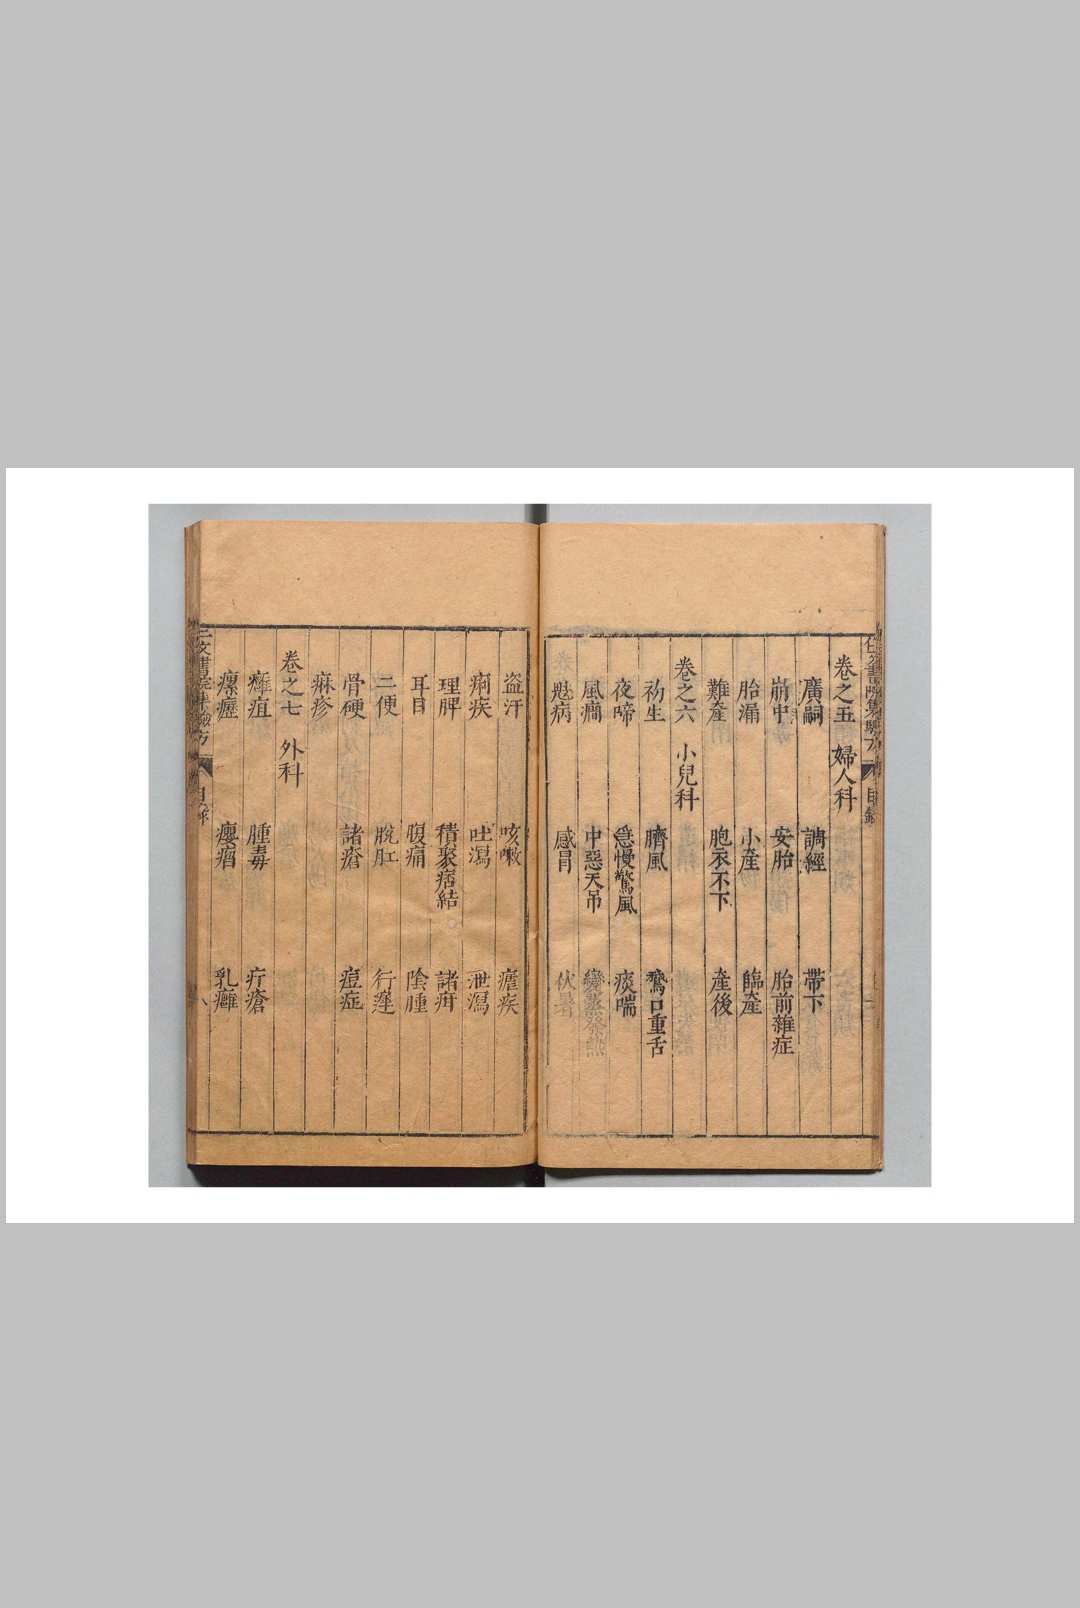 仁文書院集驗方 目錄
卷之五 婦人科
廣嗣 調經 帶下
崩中 安胎 胎前雜症
胎漏 小產 臨產
難產 胞衣不下 產後
卷之六 小兒科
初生 臍風 鵞口重舌
夜啼 急慢驚風 痰喘
風癎 中惡天吊 變蒸發熱
魃病 感冒 伏暑
盜汗 咳嗽 瘧疾
痢疾 吐瀉 泄瀉
理脾 積聚痞結 諸疳
耳目 腹痛 陰腫
二便 脫肛 行遲
骨硬 諸瘡 痘症
痳疹
卷之七 外科
癰疽 腫毒 疔瘡
瘰癧 癭瘤 乳癰
仁文書院集驗方 目錄 八